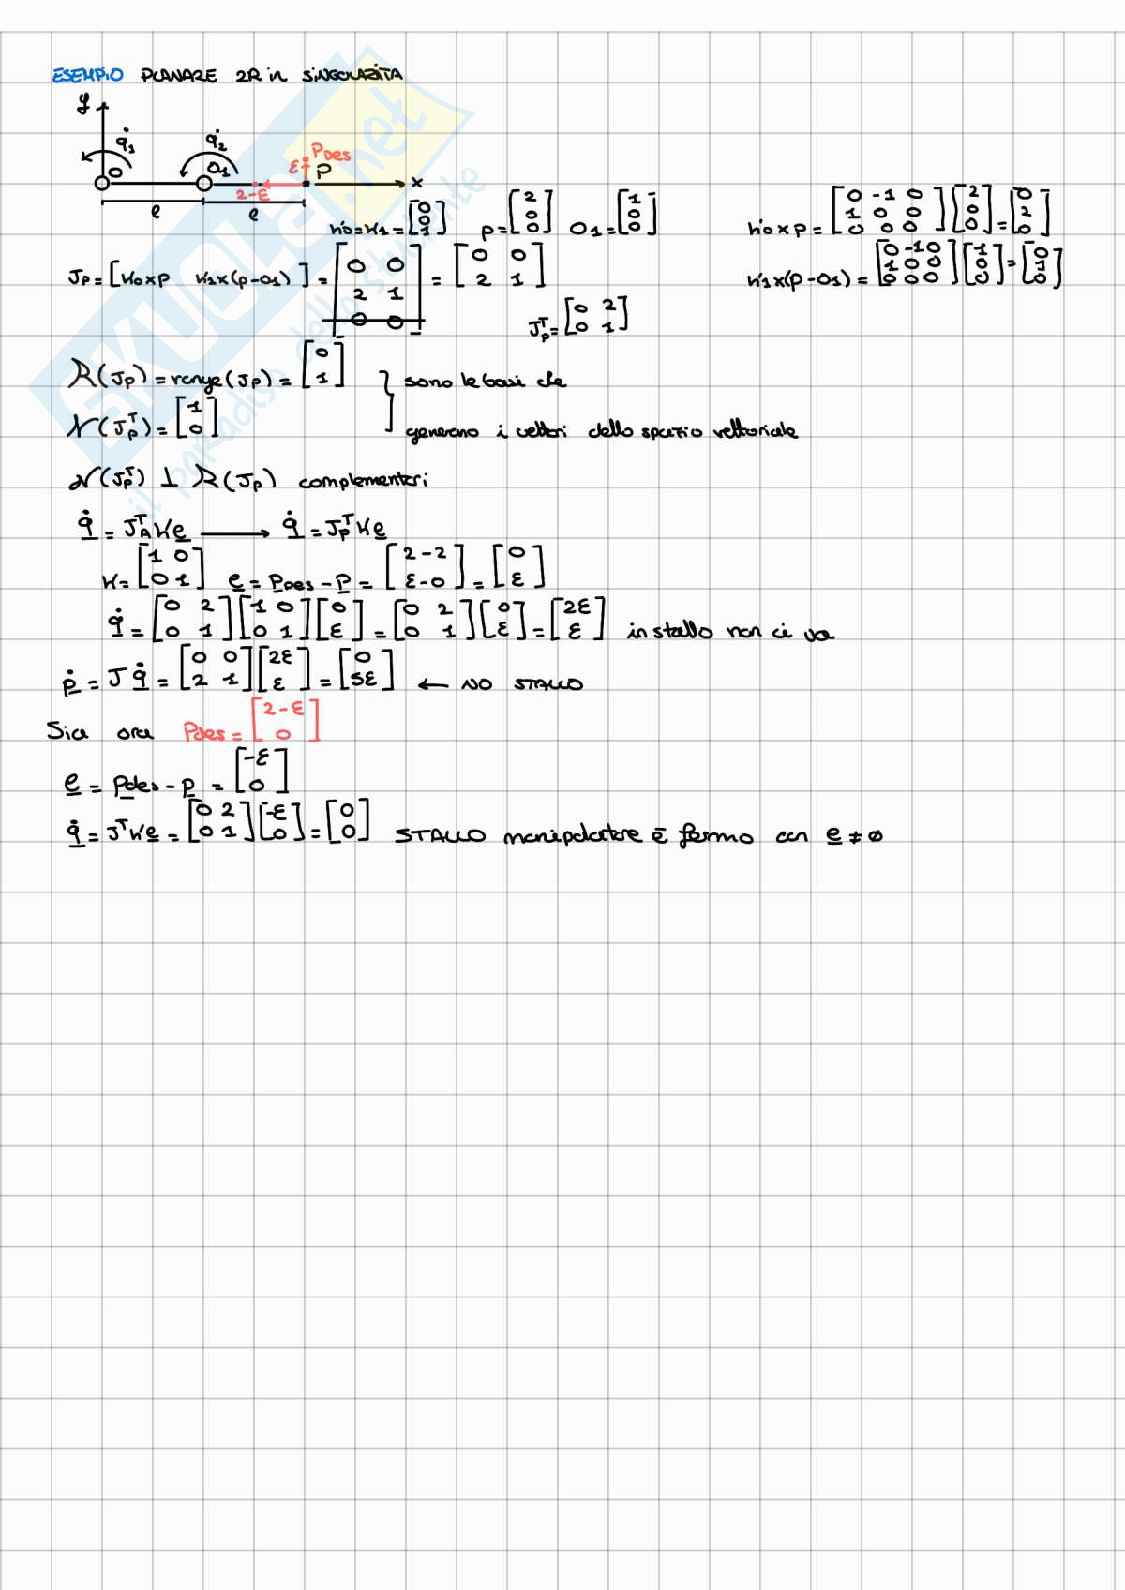 ESEMPIO PLANARE 2R in SINGOLARITA
y q̇1 q̇2 O O1 ε Pdes P x
2-ε
l l
k0=k1=[0 0 1] p=[2 0 0] O1=[1 0 0] k0×p=[0 -1 0; 1 0 0; 0 0 0][2 0 0]=[0 2 0]
JP=[k0×p k1×(p-O1)]=[0 0; 2 1; 0 0]=[0 0; 2 1] k1×(p-O1)=[0 -1 0; 1 0 0; 0 0 0][1 0 0]=[0 1 0]
JP^T=[0 2; 0 1]
R(JP)=range(JP)=[0 1] } sono le basi che
N(JP^T)=[1 0] generano i vettori dello spazio vettoriale
N(JP^T) ⊥ R(JP) complementari
q̇=JA^T K e → q̇=JP^T K e
K=[1 0; 0 1] e=Pdes-P=[2-2; ε-0]=[0 ε]
q̇=[0 2; 0 1][1 0; 0 1][0 ε]=[0 2; 0 1][0 ε]=[2ε ε] in stallo non ci va
ṗ=J q̇=[0 0; 2 1][2ε ε]=[0 5ε] ← NO STALLO
Sia ora Pdes=[2-ε 0]
e=pdes-p=[-ε 0]
q̇=J^T K e=[0 2; 0 1][-ε 0]=[0 0] STALLO manipolatore è fermo con e≠0
SKUOLA.net
il paradiso dello studente